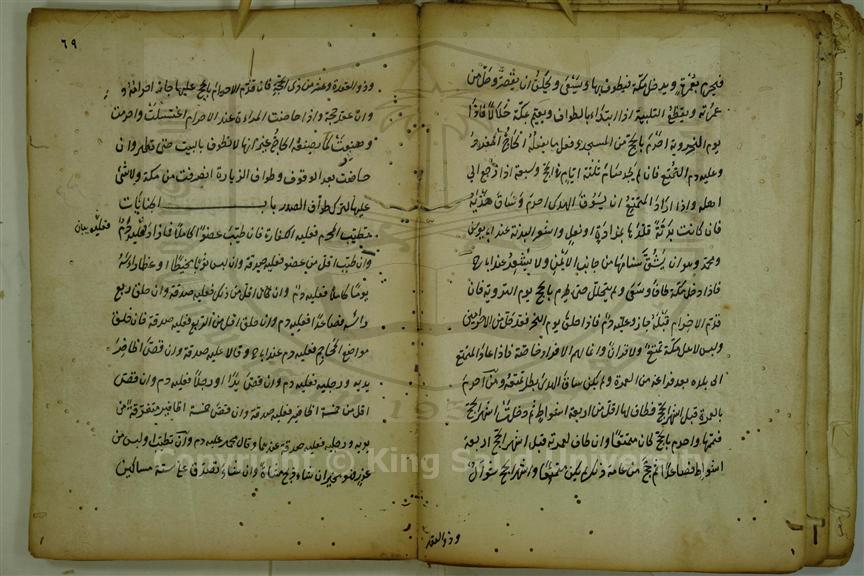 فيحرم بعمرة ويدخل مكة فيطوف لها ويسعى ويحلق او يقصر وحل من
عمرته ويقطع التلبية اذا ابتداء بالطواف ويقيم بمكة حلالا فاذا
يوم التروية احرم بالحج من المسجد وفعل ما يفعله الحاج المفرد
وعليه دم التمتع فان لم يجد صام ثلثة ايام في الحج وسبعة اذا رجع الى
اهله واذا اراد المتمتع ان يسوق الهدى احرم وساق هديه
فان كانت بدنة قلدها بمزادة او نعل واشعر البدنة عند ابى يوسف
ومحمد وهو ان يشق سنامها من جانب الايمن ولا يشعر عند ابى ح
فاذا دخل مكة طاف وسعى ولم يتحلل حتى يحرم بالحج يوم التروية فان
قدم الاحرام قبله جاز وعليه دم فاذا حلق يوم النحر فقد حل من الاحرامين
وليس لاهل مكة تمتع ولا قران وانما لهم الافراد خاصة فاذا عاد المتمتع
الى بلده بعد فراغه من العمرة ولم يكن ساق الهدى بطل تمتعه ومن احرم
بالعمرة قبل اشهر الحج فطاف لها اقل من اربعة اشواط ثم دخلت اشهر الحج
فتممها واحرم بالحج كان متمتعا وان طاف لعمرته قبل اشهر الحج اربعة
اشواط فصاعدا ثم حج من عامه ذلك لم يكن متمتعا واشهر الحج شوال
وذو القعدة
٦٩
وذو القعدة وعشر من ذى الحجة فان قدم الاحرام بالحج عليها جاز احرامه
وانعقد حجة واذا حاضت المراءة عند الاحرام اغتسلت واحرمت
وصنعت كما يصنعه الحاج غير انها لا تطوف بالبيت حتى تطهر وان
حاضت بعد الوقوف وطواف الزيارة انصرفت من مكة ولا شئ
عليها لترك طواف الصدر باب الجنايات
تطيب المحرم فعليه الكفارة فان طيب عضوا كاملا فما زاد فعليه دم
فعليه بيان
وان طيب اقل من عضو فعليه صدقة وان لبس ثوبا مخيطا او غطا رأسه
يوما كاملا فعليه دم وان كان اقل من ذلك فعليه صدقة وان حلق ربع
رأسه فصاعدا فعليه دم وان حلق اقل من الربع فعليه صدقة فان حلق
مواضع المحاجم فعليه دم عند ابى ح وقالا عليه صدقة وان قص اظافير
يديه ورجليه فعليه دم وان قص يدا او رجلا فعليه دم وان قص
اقل من خمسة اظافير فعليه صدقة وان قص خمسة اظافير متفرقة من
يديه ورجليه فعليه صدقة عندهما وقال محمد عليه دم وان تطيب ولبس من
عذر فهو مخير ان شاء ذبح شاة وان شاء تصدق على ستة مساكين
Copyright © King Saud University